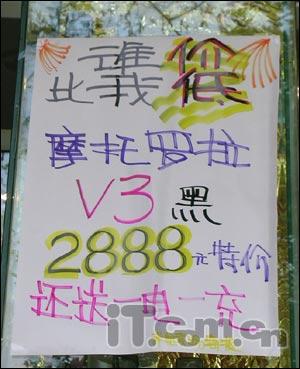 谁价
比我低
摩托罗拉
V3黑
2888元特价
还送一电一充
iT.com.cn